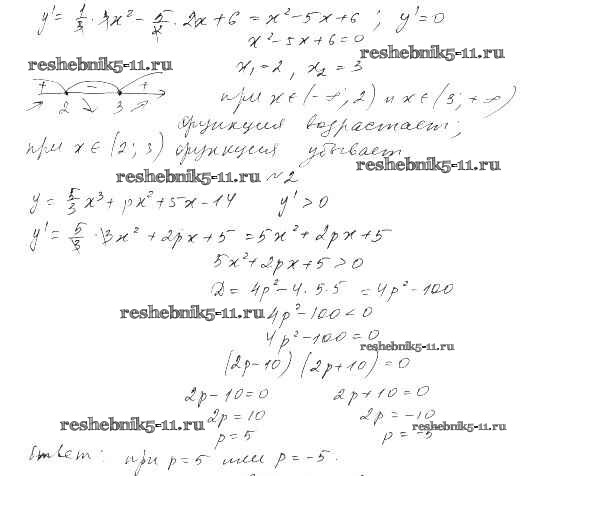 y' = 1/3 · 3x² - 5/2 · 2x + 6 = x² - 5x + 6 ; y' = 0
x² - 5x + 6 = 0
reshebnik5-11.ru
reshebnik5-11.ru
x₁ = 2 , x₂ = 3
+ - +
2 3
при x ∈ (-∞; 2) и x ∈ (3; +∞)
функция возрастает;
при x ∈ (2; 3) функция убывает
reshebnik5-11.ru
reshebnik5-11.ru
№2
y = 5/3 x³ + px² + 5x - 14 y' > 0
y' = 5/3 · 3x² + 2px + 5 = 5x² + 2px + 5
5x² + 2px + 5 > 0
D = 4p² - 4 · 5 · 5 = 4p² - 100
reshebnik5-11.ru
4p² - 100 < 0
4p² - 100 = 0
reshebnik5-11.ru
(2p - 10) (2p + 10) = 0
2p - 10 = 0 2p + 10 = 0
2p = 10 2p = -10
reshebnik5-11.ru
reshebnik5-11.ru
p = 5 p = -5
Ответ: при p = 5 или p = -5.